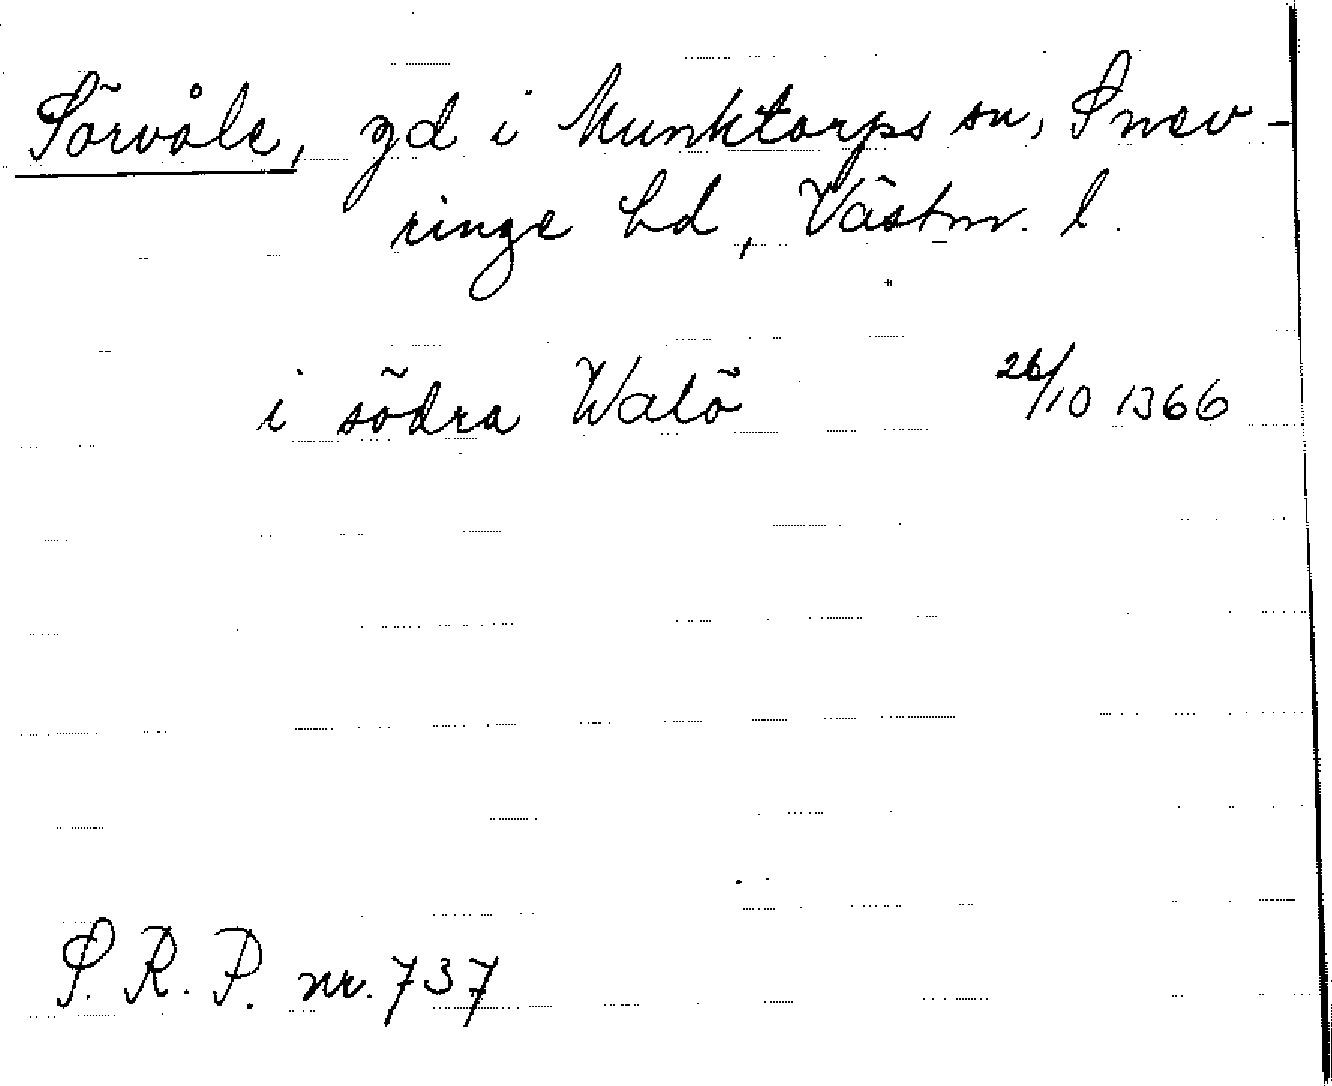 Sörvåle, gd i Munktorps sn, Snev-
ringe hd, Västm. l.
i södra Walö 26/10 1366
S. R. P. nr. 737